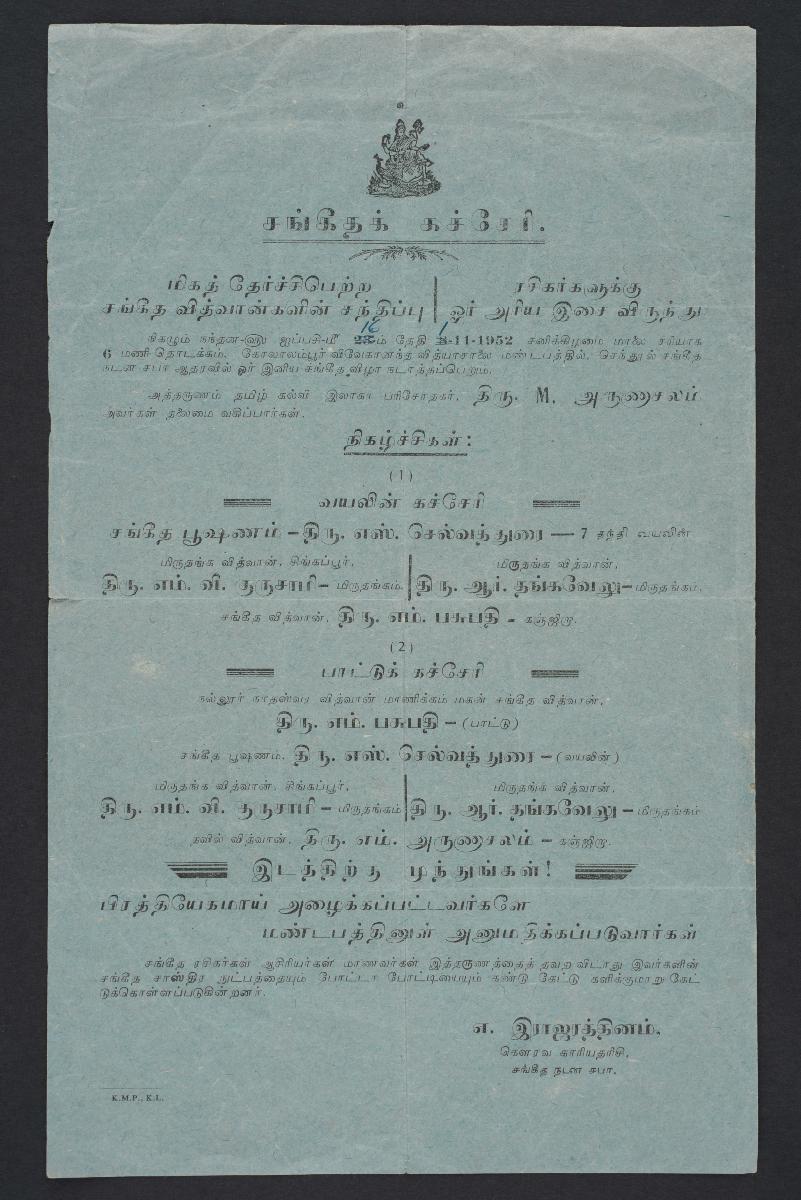 உ
சங்கீதக் கச்சேரி.
மிகத் தேர்ச்சிபெற்ற
சங்கீத வித்வான்களின் சந்திப்பு
ரசிகர்களுக்கு
ஓர் அரிய இசை விருந்து
நிகழும் நந்தன-௵ ஐப்பசி-மீ 16 ம் தேதி 1-11-1952 சனிக்கிழமை மாலை சரியாக
6 மணி தொடக்கம், கோலாலம்பூர் விவேகானந்த வித்யாசாலை மண்டபத்தில், செந்தூல் சங்கீத
நடன சபா ஆதரவில் ஓர் இனிய சங்கீத விழா நடாத்தப்பெறும்.
அத்தருணம் தமிழ் கல்வி இலாகா பரிசோதகர், திரு. M. அருணாசலம்
அவர்கள் தலைமை வகிப்பார்கள்.
நிகழ்ச்சிகள்:
(1)
வயலின் கச்சேரி
சங்கீத பூஷணம் – திரு. எஸ். செல்வத்துரை — 7 தந்தி வயலின்
மிருதங்க வித்வான், சிங்கப்பூர்,
திரு. எம். வி. குருசாமி – மிருதங்கம்.
மிருதங்க வித்வான்,
திரு. ஆர். தங்கவேலு – மிருதங்கம்.
சங்கீத வித்வான், திரு. எம். பசுபதி – கஞ்ஜிரா.
(2)
பாட்டுக் கச்சேரி
நல்லூர் நாதஸ்வர வித்வான் மாணிக்கம் மகன் சங்கீத வித்வான்,
திரு. எம். பசுபதி – (பாட்டு)
சங்கீத பூஷணம், திரு. எஸ். செல்வத்துரை – (வயலின்)
மிருதங்க வித்வான், சிங்கப்பூர்,
திரு. எம். வி. குருசாமி – மிருதங்கம்
மிருதங்க வித்வான்,
திரு. ஆர். தங்கவேலு – மிருதங்கம்
தவில் வித்வான், திரு. எம். அருணாசலம் – கஞ்ஜிரா.
இடத்திற்கு முந்துங்கள்!
பிரத்தியேகமாய் அழைக்கப்பட்டவர்களே
மண்டபத்தினுள் அனுமதிக்கப்படுவார்கள்
சங்கீத ரசிகர்கள் ஆசிரியர்கள் மாணவர்கள் இத்தருணத்தைத் தவற விடாது இவர்களின்
சங்கீத சாஸ்திர நுட்பத்தையும் போட்டா போட்டியையும் கண்டு கேட்டு களிக்குமாறு கேட்
டுக்கொள்ளப்படுகின்றனர்.
எ. இராஜரத்தினம்,
கௌரவ காரியதரிசி,
சங்கீத நடன சபா.
K.M.P., K.L.